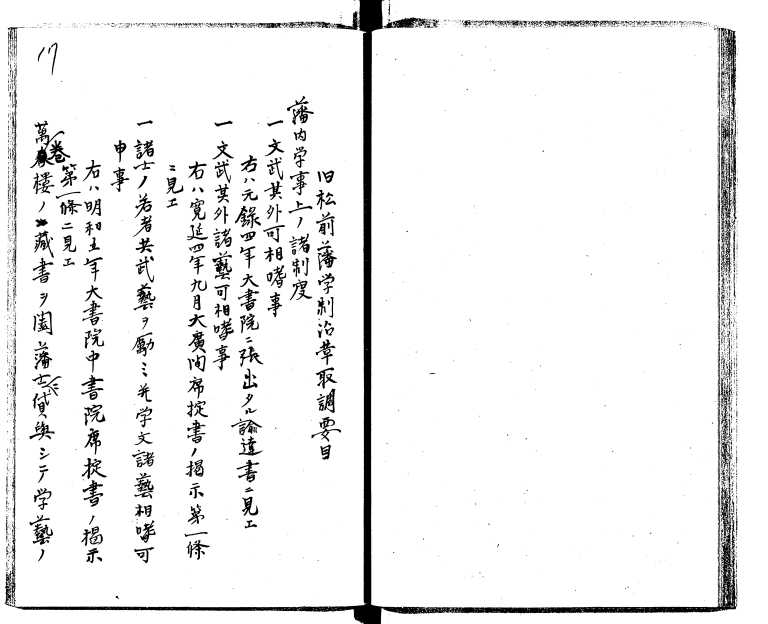 17
旧松前藩学制沿革取調要目
藩内学事上ノ諸制度
一文武其外可相嗜事
右ハ元録四年大書院ニ張出タル諭達書ニ見エ
一文武其外諸藝可相嗜事
右ハ寛延四年九月大廣間席掟書ノ掲示第一條
ニ見エ
一諸士ノ若者共武藝ヲ励ミ并学文諸藝相嗜可
申事
右ハ明和五年大書院中書院席掟書ノ掲示
第一條ニ見エ
萬巻樓ノ藏書ヲ闔藩士ニ貸與シテ学藝ノ